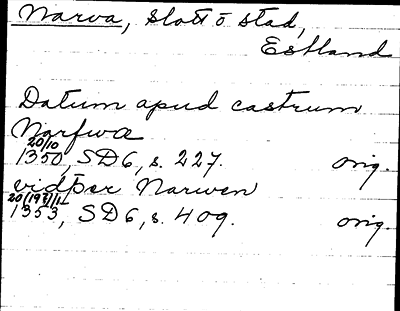 Narva, slott o stad,
Estland
Datum apud castrum
Narfwæ
20/10
1350, SD6, s. 227. orig.
vidþer Narwen
1353, SD6, s. 409. orig.